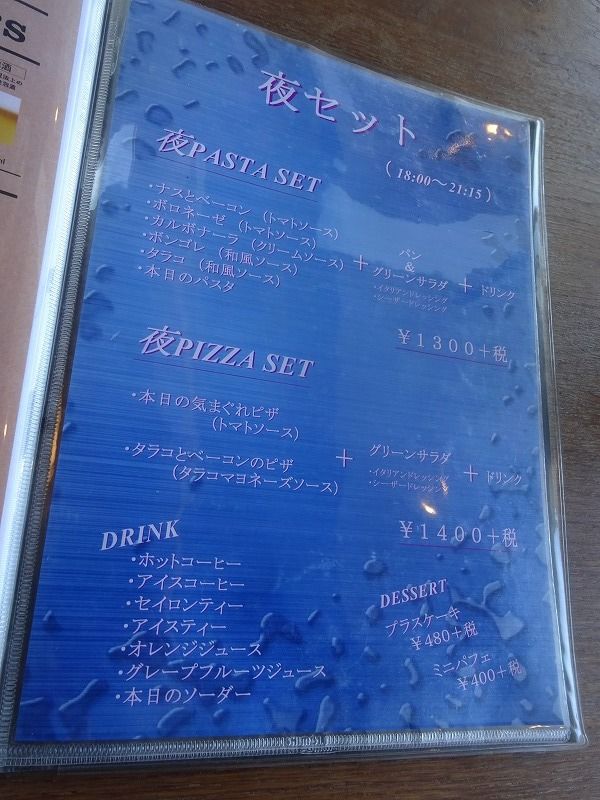 夜セット
(18:00～21:15)
夜PASTA SET
・ナスとベーコン (トマトソース)
・ボロネーゼ (トマトソース)
・カルボナーラ (クリームソース)
・ボンゴレ (和風ソース)
・タラコ (和風ソース)
・本日のパスタ
+
パン
&
グリーンサラダ
・イタリアンドレッシング
・シーザードレッシング
+ ドリンク
￥1300+税
夜PIZZA SET
・本日の気まぐれピザ
(トマトソース)
・タラコとベーコンのピザ
(タラコマヨネーズソース)
+
グリーンサラダ
・イタリアンドレッシング
・シーザードレッシング
+ ドリンク
￥1400+税
DRINK
・ホットコーヒー
・アイスコーヒー
・セイロンティー
・アイスティー
・オレンジジュース
・グレープフルーツジュース
・本日のソーダー
DESSERT
プラスケーキ
￥480+税
ミニパフェ
￥400+税